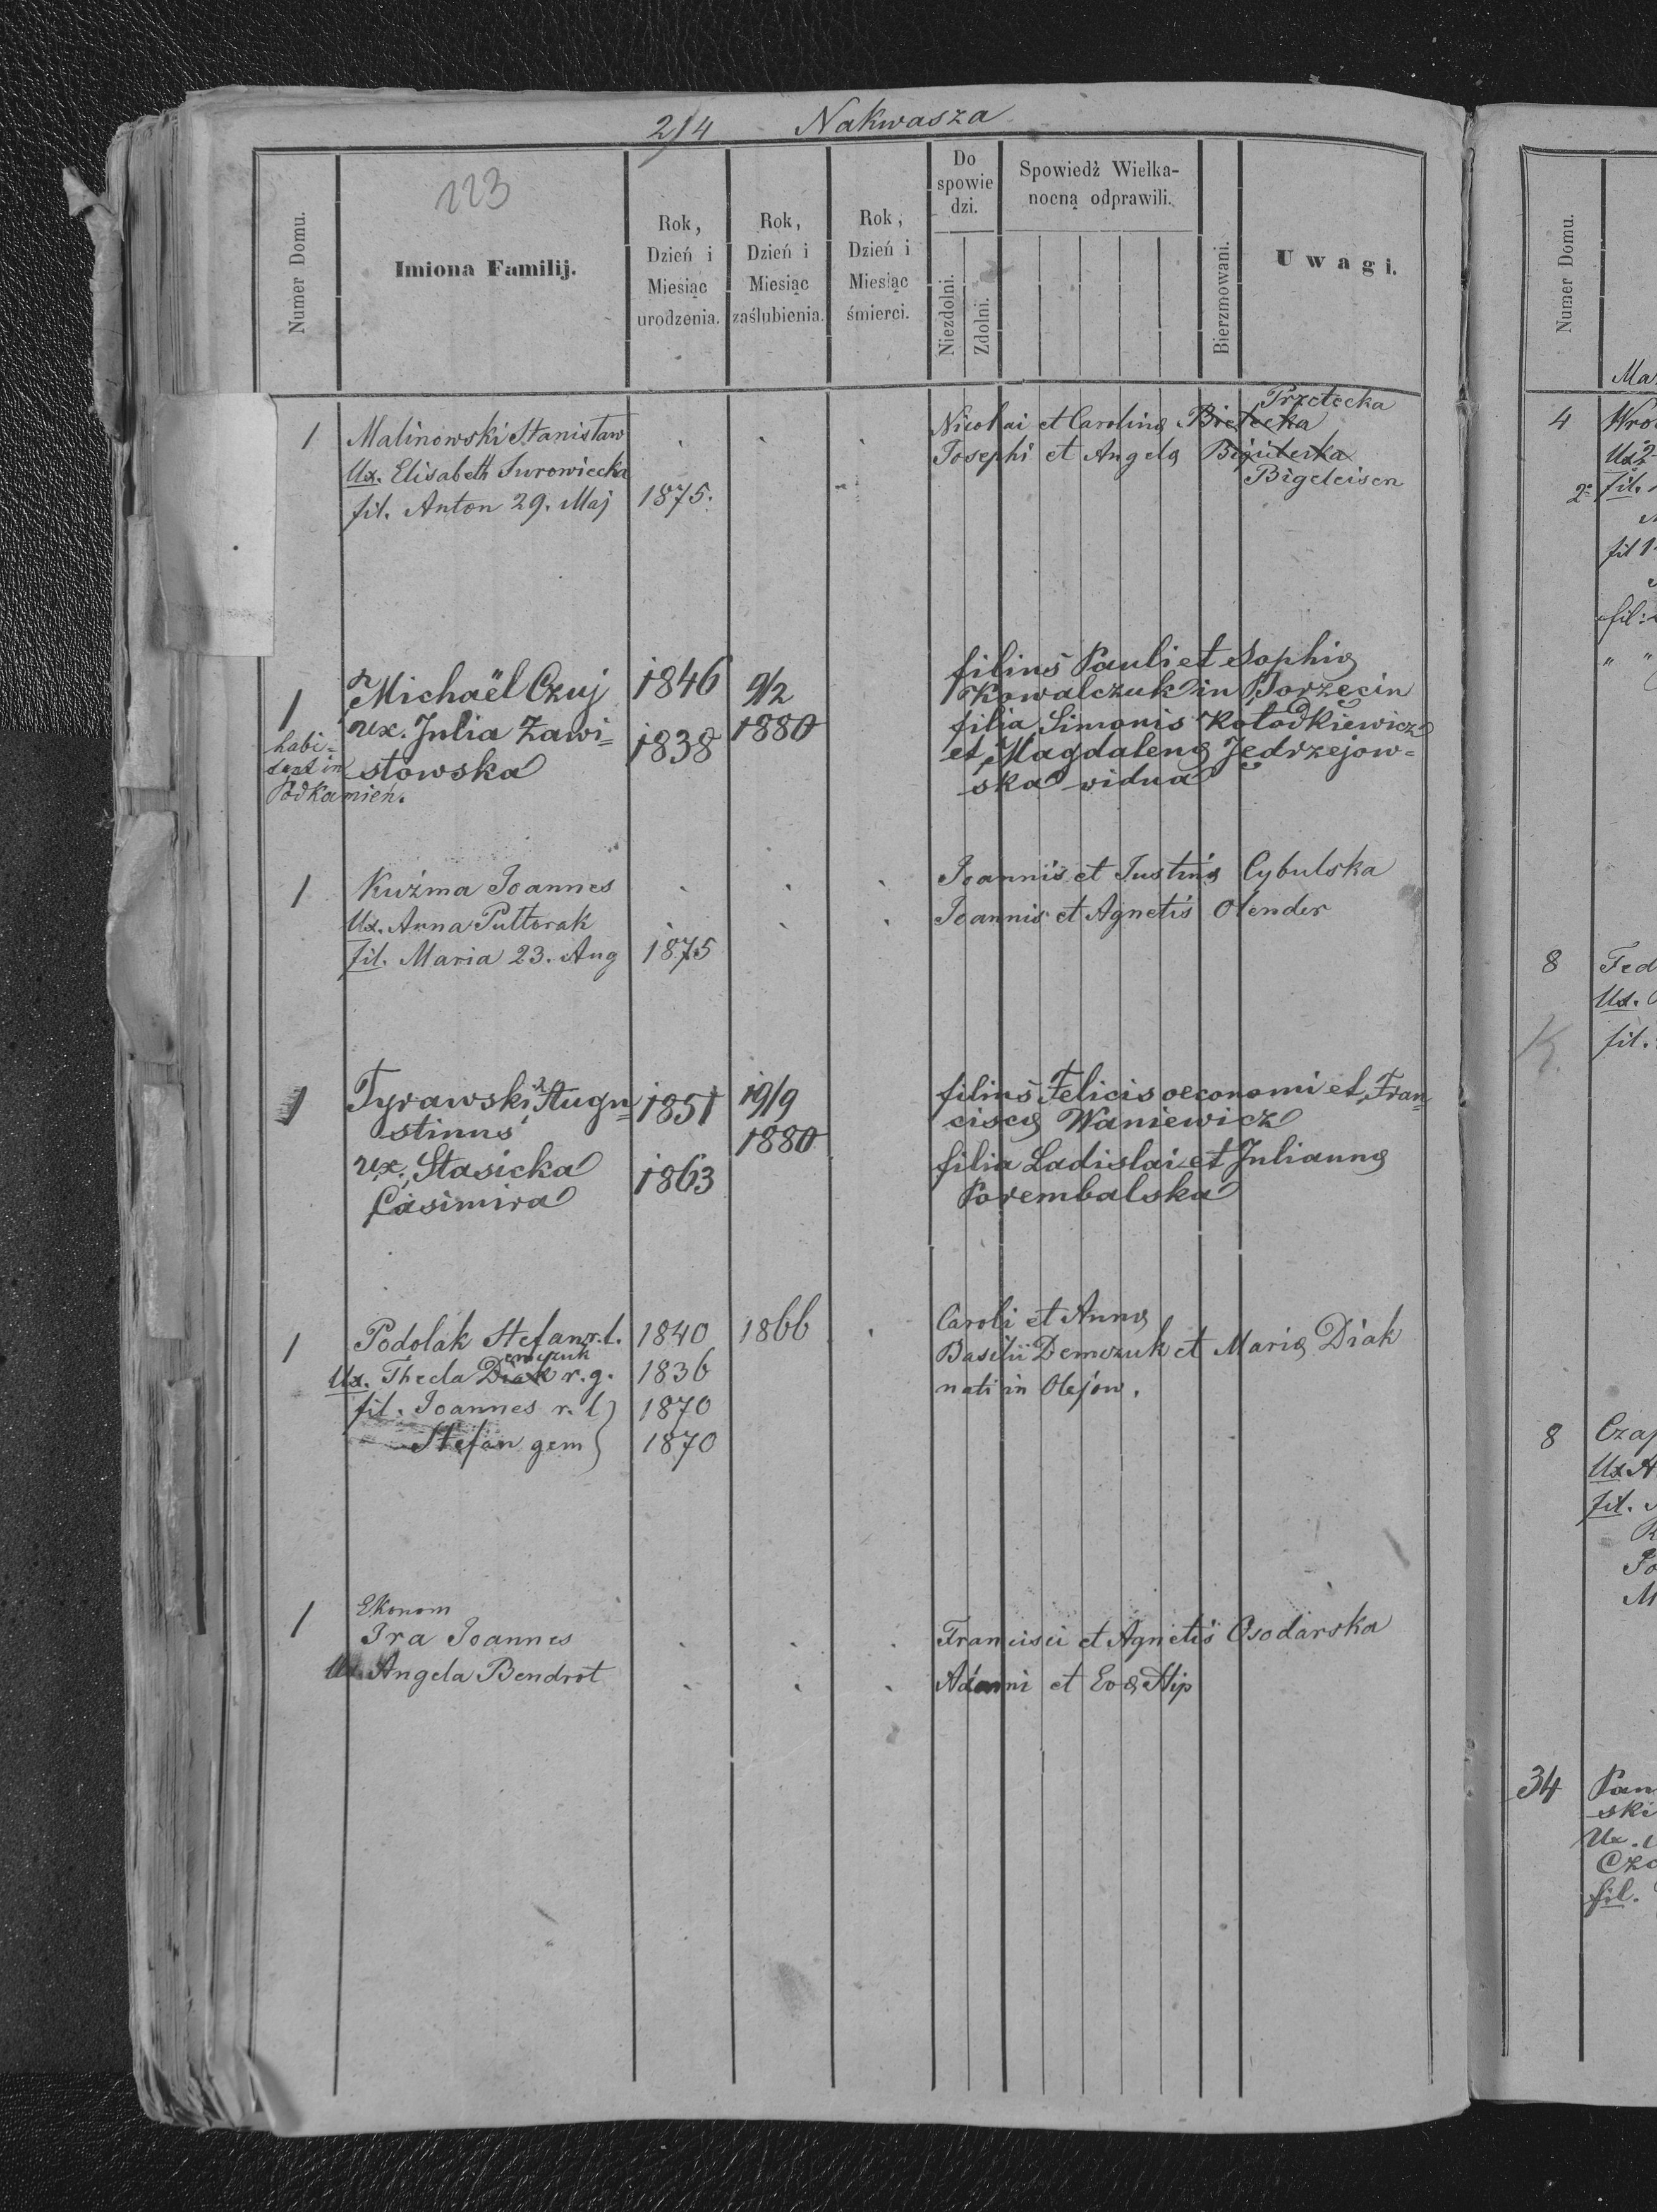 214 Nakwasza
123
Numer Domu.
Imiona Familij.
Rok, Dzień i Miesiąc urodzenia.
Rok, Dzień i Miesiąc zaślubienia.
Rok, Dzień i Miesiąc śmierci.
Do spowiedzi.
Niezdolni.
Zdolni.
Spowiedź Wielkanocną odprawili.
Bierzmowani.
Uwagi.
1 Malinowski Stanisław Nicolai et Carolinę Przetecka
Ux. Elisabeth Surowiecka Josephi et Angelę
Bigeleisen
fil. Anton 29. Maj 1875.
1 Michaël Czuj 1846 9/2 filius Pauli et Sophię
Kowalczuk in Borzęcin
ux. Julia Zawi= 1838 1880 filia Simonis Kołodkiewicz
habi=
tant in stowska et Magdalenę Jędrzejow=
Podkamień. ska vidua
1 Kuźma Joannes Joannis et Justinę Cybulska
Ux. Anna Pułtorak Joannis et Agnetis Olender
fil. Maria 23. Aug 1875
1 Tyrawski Augu= 1851 19/9 filius Felicis oeconomi et Fran=
stinus 1880 ciscę Waniewicz
ux. Stasicka 1863 filia Ladislai et Juliannę
Casimira Porembalska
1 Podolak Stefan r.l. 1840 1866 Caroli et Annę
emczuk
Ux. Thecla Diak r.g. 1836 Basilii Demczuk et Marię Diak
fil. Joannes r.l } 1870 nati in Olejow.
Stefan gem } 1870
Ekonom
1 Ira Joannes Francisci et Agnetis Osodarska
Ux. Angela Bendrot Adami et Evę Hip
Numer Domu.
4
2
fil.
fil 1
fil:
8 Fed
Ux.
fil.
8 Czap
Ux A
fil.
34 Pan
ski
Ux.
Cza
fil.